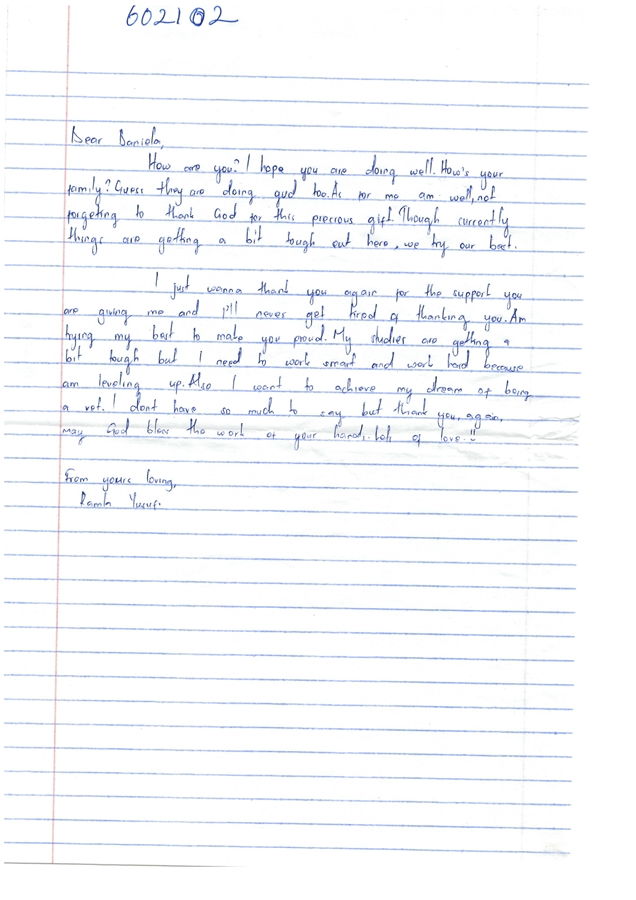 602102
Dear Daniela,
How are you? I hope you are doing well. How's your
family? Guess they are doing gud too. As for me am well, not
forgeting to thank God for this precious gift. Though currently
things are getting a bit tough out here, we try our best.
I just wanna thank you again for the support you
are giving me and I'll never get tired of thanking you. Am
trying my best to make you proud. My studies are getting a
bit tough but I need to work smart and work hard because
am leveling up. Also I want to achieve my dream of being
a vet. I dont have so much to say but thank you, again,
may God bless the work of your hands. Lots of love. !!
From yours loving,
Yusuf.